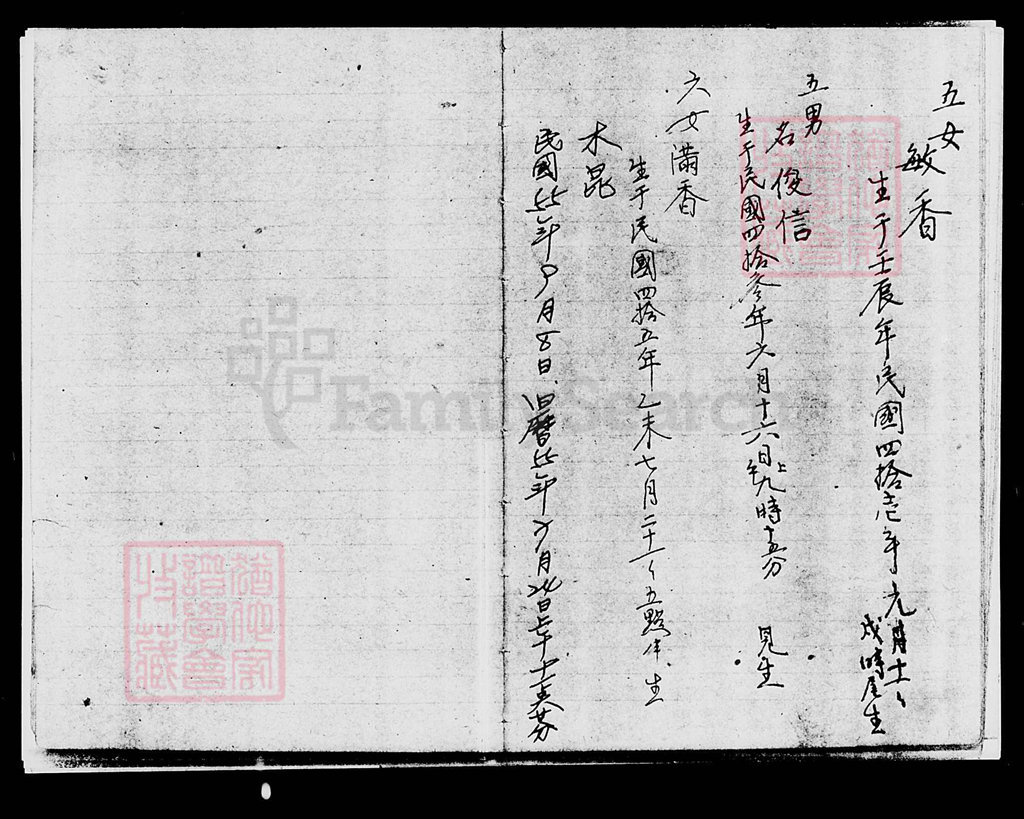 五女
敏香
生于壬辰年民國四拾壱年九月十二
戌時尾生
五男
名俊信
生于民國四拾叁年六月十六日上午九時十五分 見生
六女滿香
生于民國四拾五年乙未七月二十一 五點 生
木昆
民國55年9月8日、旧曆55年7月24日上午十一 分
FamilySearch